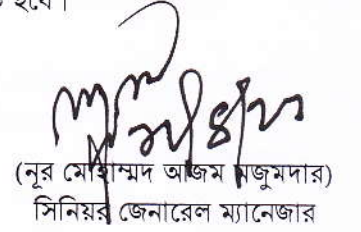 হবে।
(নূর মোহাম্মদ আজম মজুমদার)
সিনিয়র জেনারেল ম্যানেজার